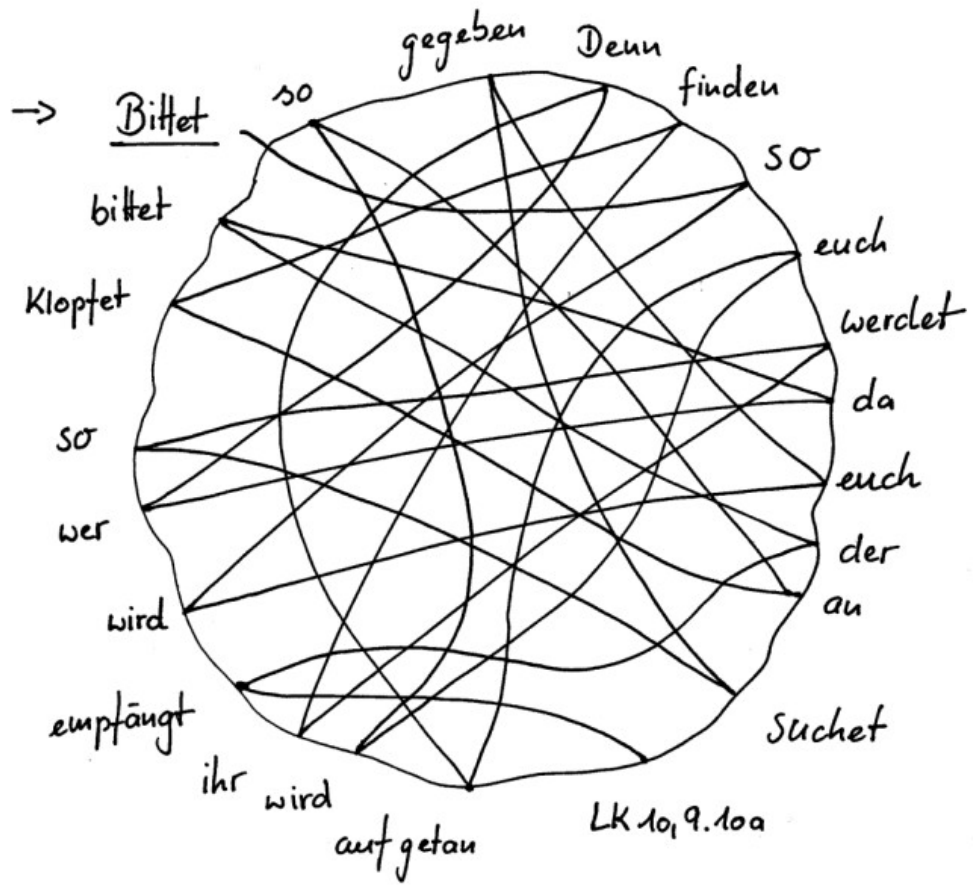 → Bittet
so
gegeben
Denn
finden
so
euch
werdet
da
euch
der
an
Suchet
LK 10, 9.10a
aufgetan
wird
ihr
empfängt
wird
wer
so
Klopfet
bittet